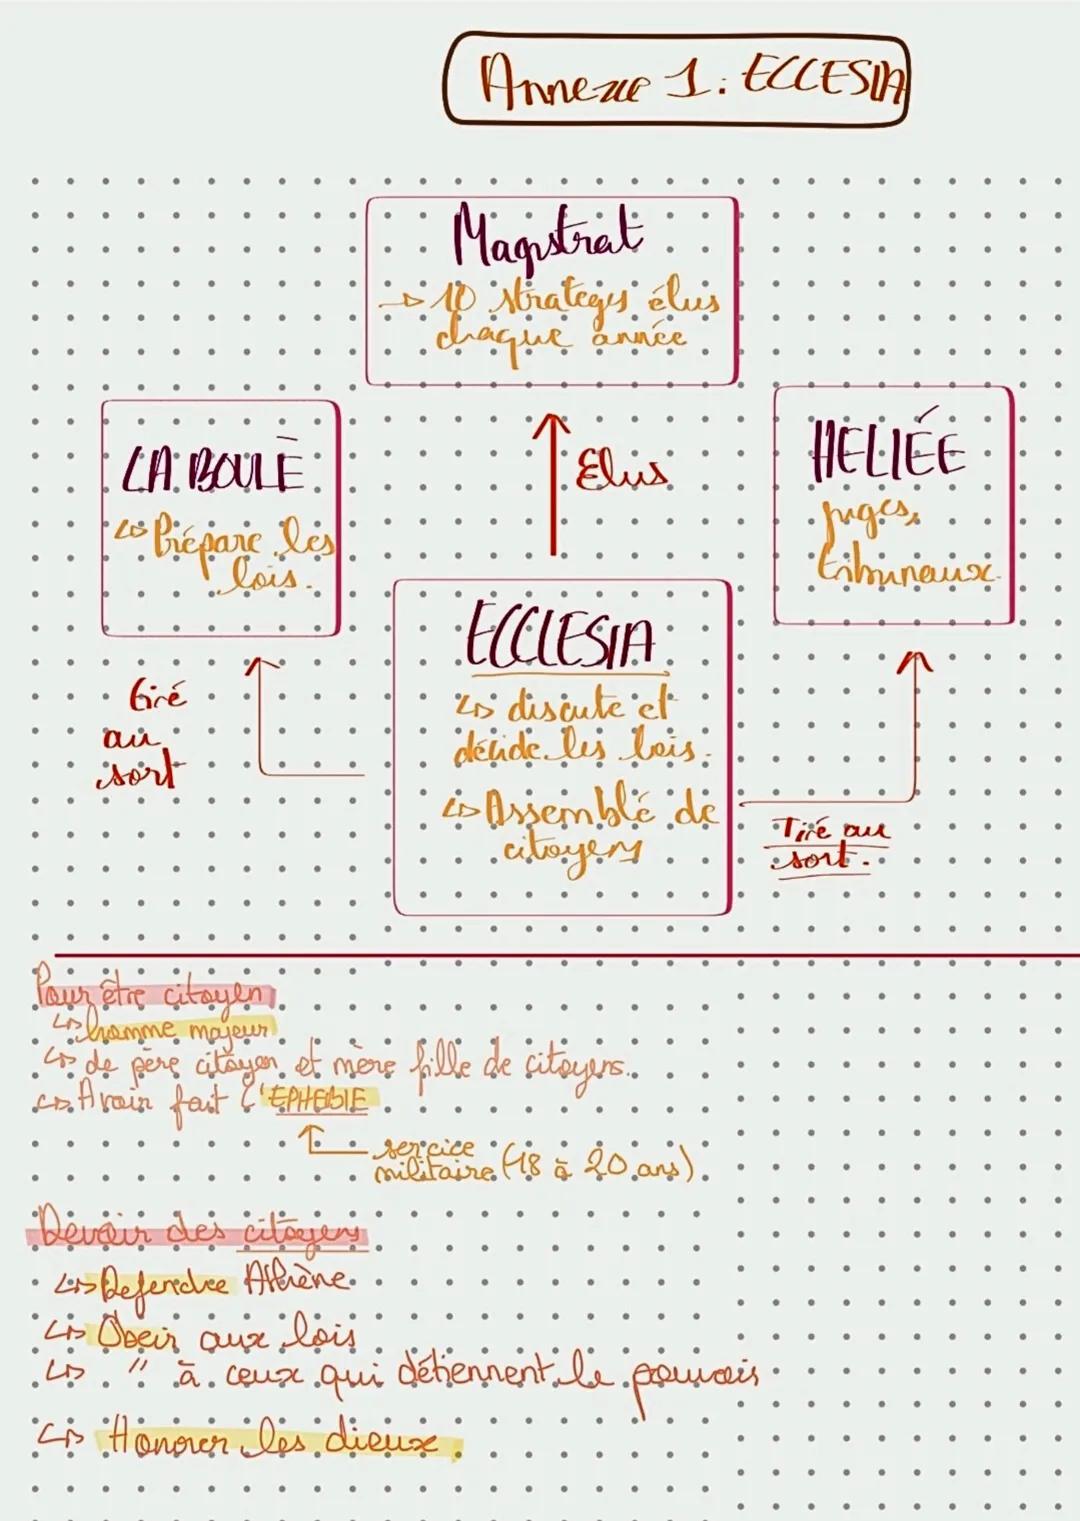 Annexe 1: ECCLESIA
Magistrat
→ 10 strateges élus
chaque année
LA BOULÈ
↳ Prépare les
lois.
Elus
HELIÉE
juges,
tribunaux.
ECCLESIA
↳ discute et
décide les lois.
↳ Assemblé de
citoyens
tiré
au
sort
Tiré au
sort.
Pour être citoyen
↳ homme majeur
↳ de père citoyen et mère fille de citoyens.
↳ Avoir fait l'EPHEBIE
service
militaire (18 à 20 ans).
Devoir des citoyens
↳ Defendre Athène
↳ Obeir aux lois
↳ " à ceux qui détiennent le pouvoir
↳ Honorer les dieux.